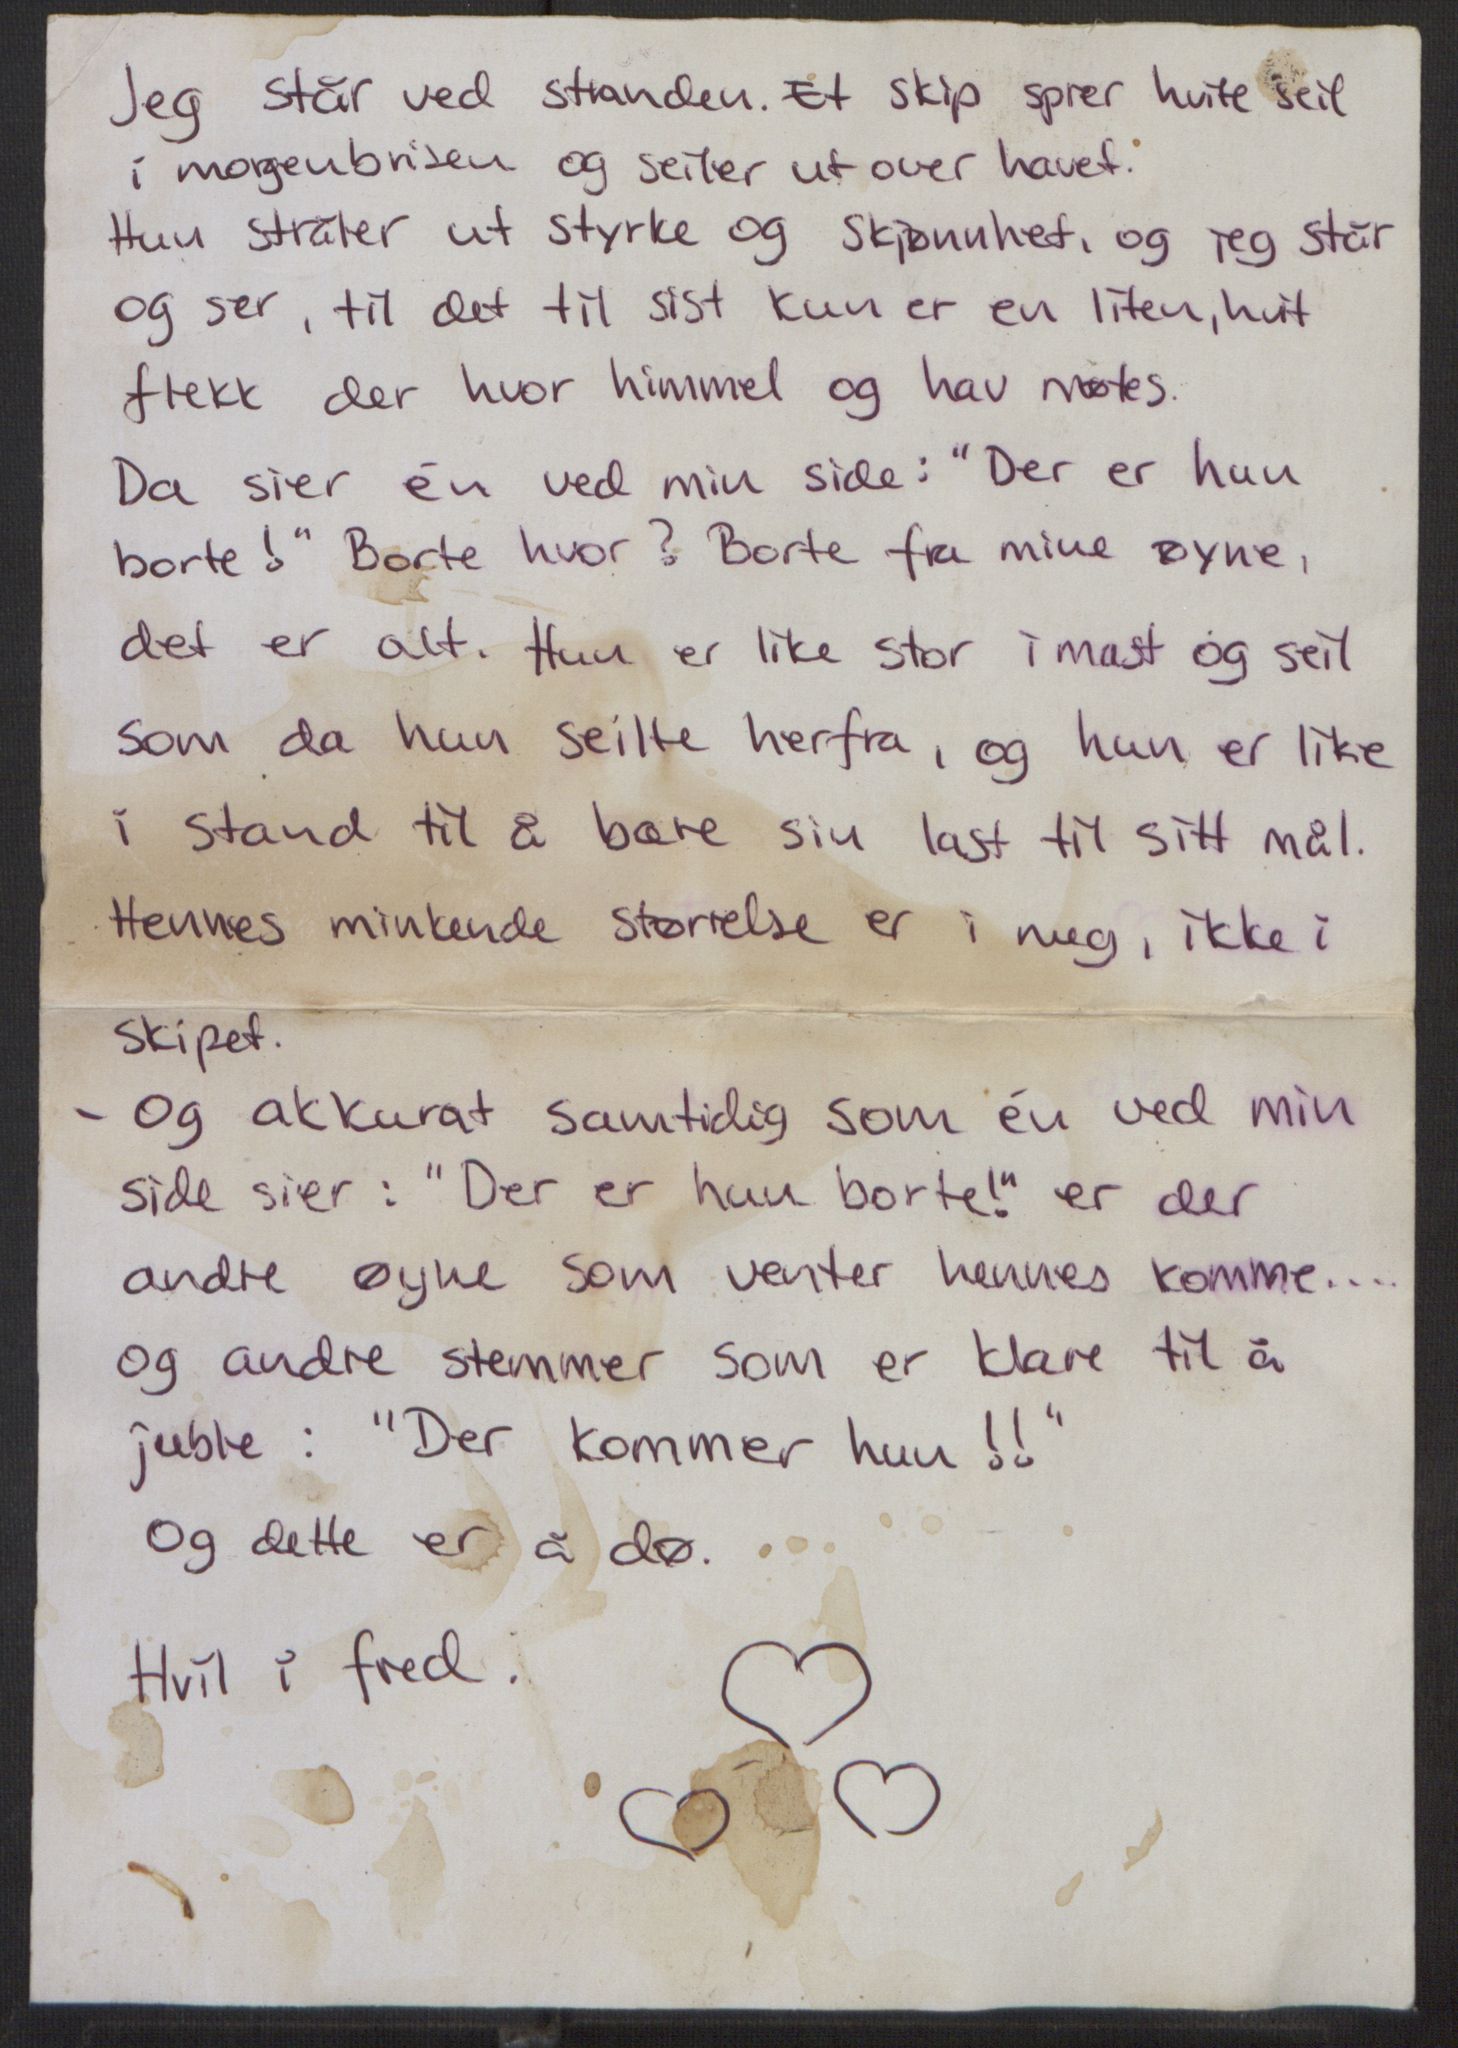 Jeg står ved stranden. Et skip sprer hvite seil
i morgenbrisen og seiler ut over havet.
Hun stråler ut styrke og skjønnhet, og jeg står
og ser, til det til sist kun er en liten, hvit
flekk der hvor himmel og hav møtes.
Da sier én ved min side: "Der er hun
borte!" Borte hvor? Borte fra mine øyne,
det er alt. Hun er like stor i mast og seil
som da hun seilte herfra, og hun er like
i stand til å bære sin last til sitt mål.
Hennes minkende størrelse er i meg, ikke i
skipet.
- Og akkurat samtidig som én ved min
side sier: "Der er hun borte!" er der
andre øyne som venter hennes komme....
og andre stemmer som er klare til å
juble: "Der kommer hun!!"
Og dette er å dø.
Hvil i fred.